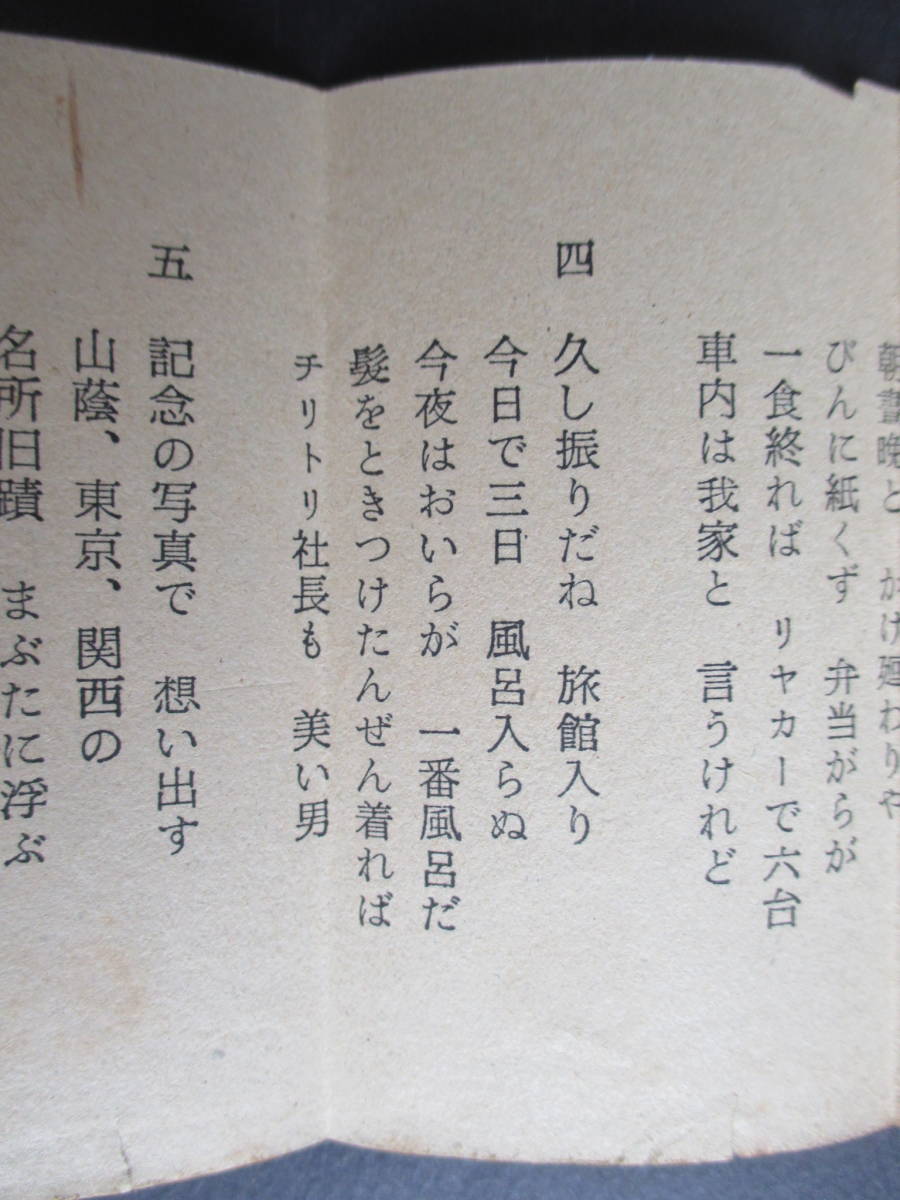 朝晝晩と かけ廻わりや
びんに紙くず 弁当がらが
一食終れば リヤカーで六台
車内は我家と 言うけれど
四 久し振りだね 旅館入り
今日で三日 風呂入らぬ
今夜はおいらが 一番風呂だ
髪をときつけたんぜん着れば
チリトリ社長も 美い男
五 記念の写真で 想い出す
山蔭、東京、関西の
名所旧蹟 まぶたに浮ぶ